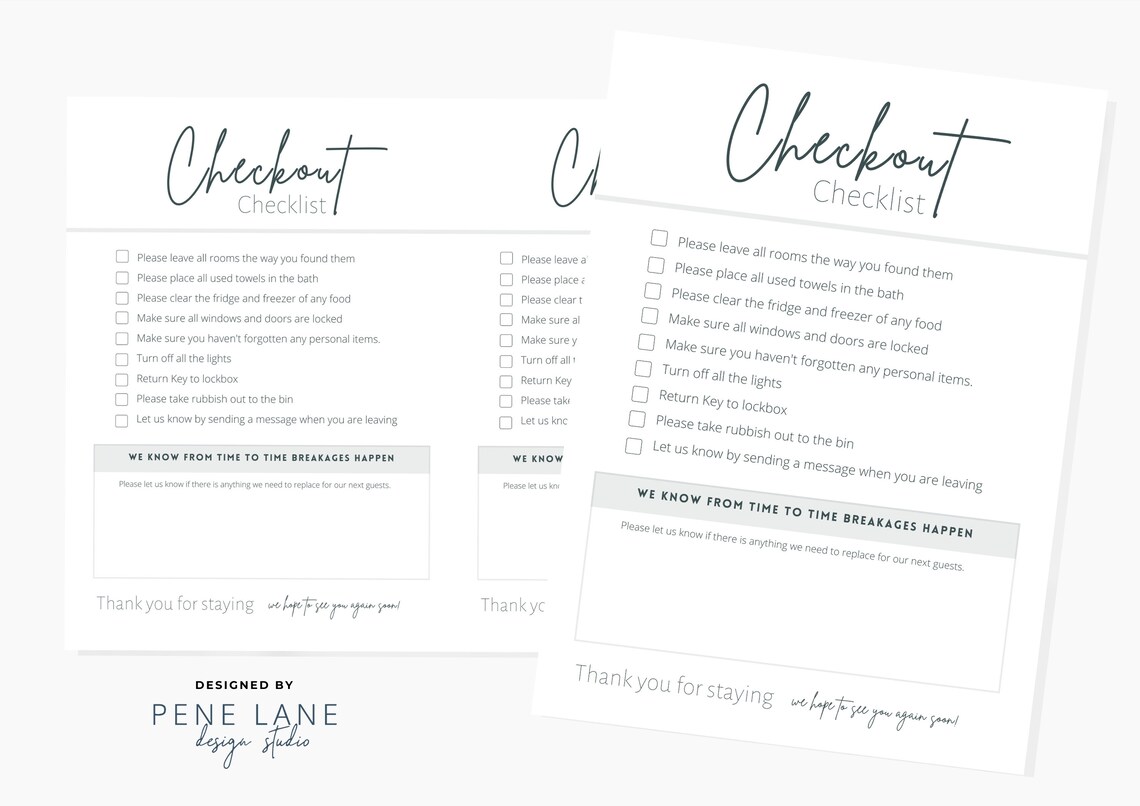 Checkout
Checklist
Please leave all rooms the way you found them
Please place all used towels in the bath
Please clear the fridge and freezer of any food
Make sure all windows and doors are locked
Make sure you haven't forgotten any personal items.
Turn off all the lights
Return Key to lockbox
Please take rubbish out to the bin
Let us know by sending a message when you are leaving
WE KNOW FROM TIME TO TIME BREAKAGES HAPPEN
Please let us know if there is anything we need to replace for our next guests.
Thank you for staying we hope to see you again soon!
Ch
Please leave a
Please place a
Please clear t
Make sure al
Make sure y
Turn off all t
Return Key
Please take
Let us kno
WE KNOW
Please let us kn
Thank yo
Checkout
Checklist
Please leave all rooms the way you found them
Please place all used towels in the bath
Please clear the fridge and freezer of any food
Make sure all windows and doors are locked
Make sure you haven't forgotten any personal items.
Turn off all the lights
Return Key to lockbox
Please take rubbish out to the bin
Let us know by sending a message when you are leaving
WE KNOW FROM TIME TO TIME BREAKAGES HAPPEN
Please let us know if there is anything we need to replace for our next guests.
Thank you for staying we hope to see you again soon!
DESIGNED BY
PENE LANE
design studio